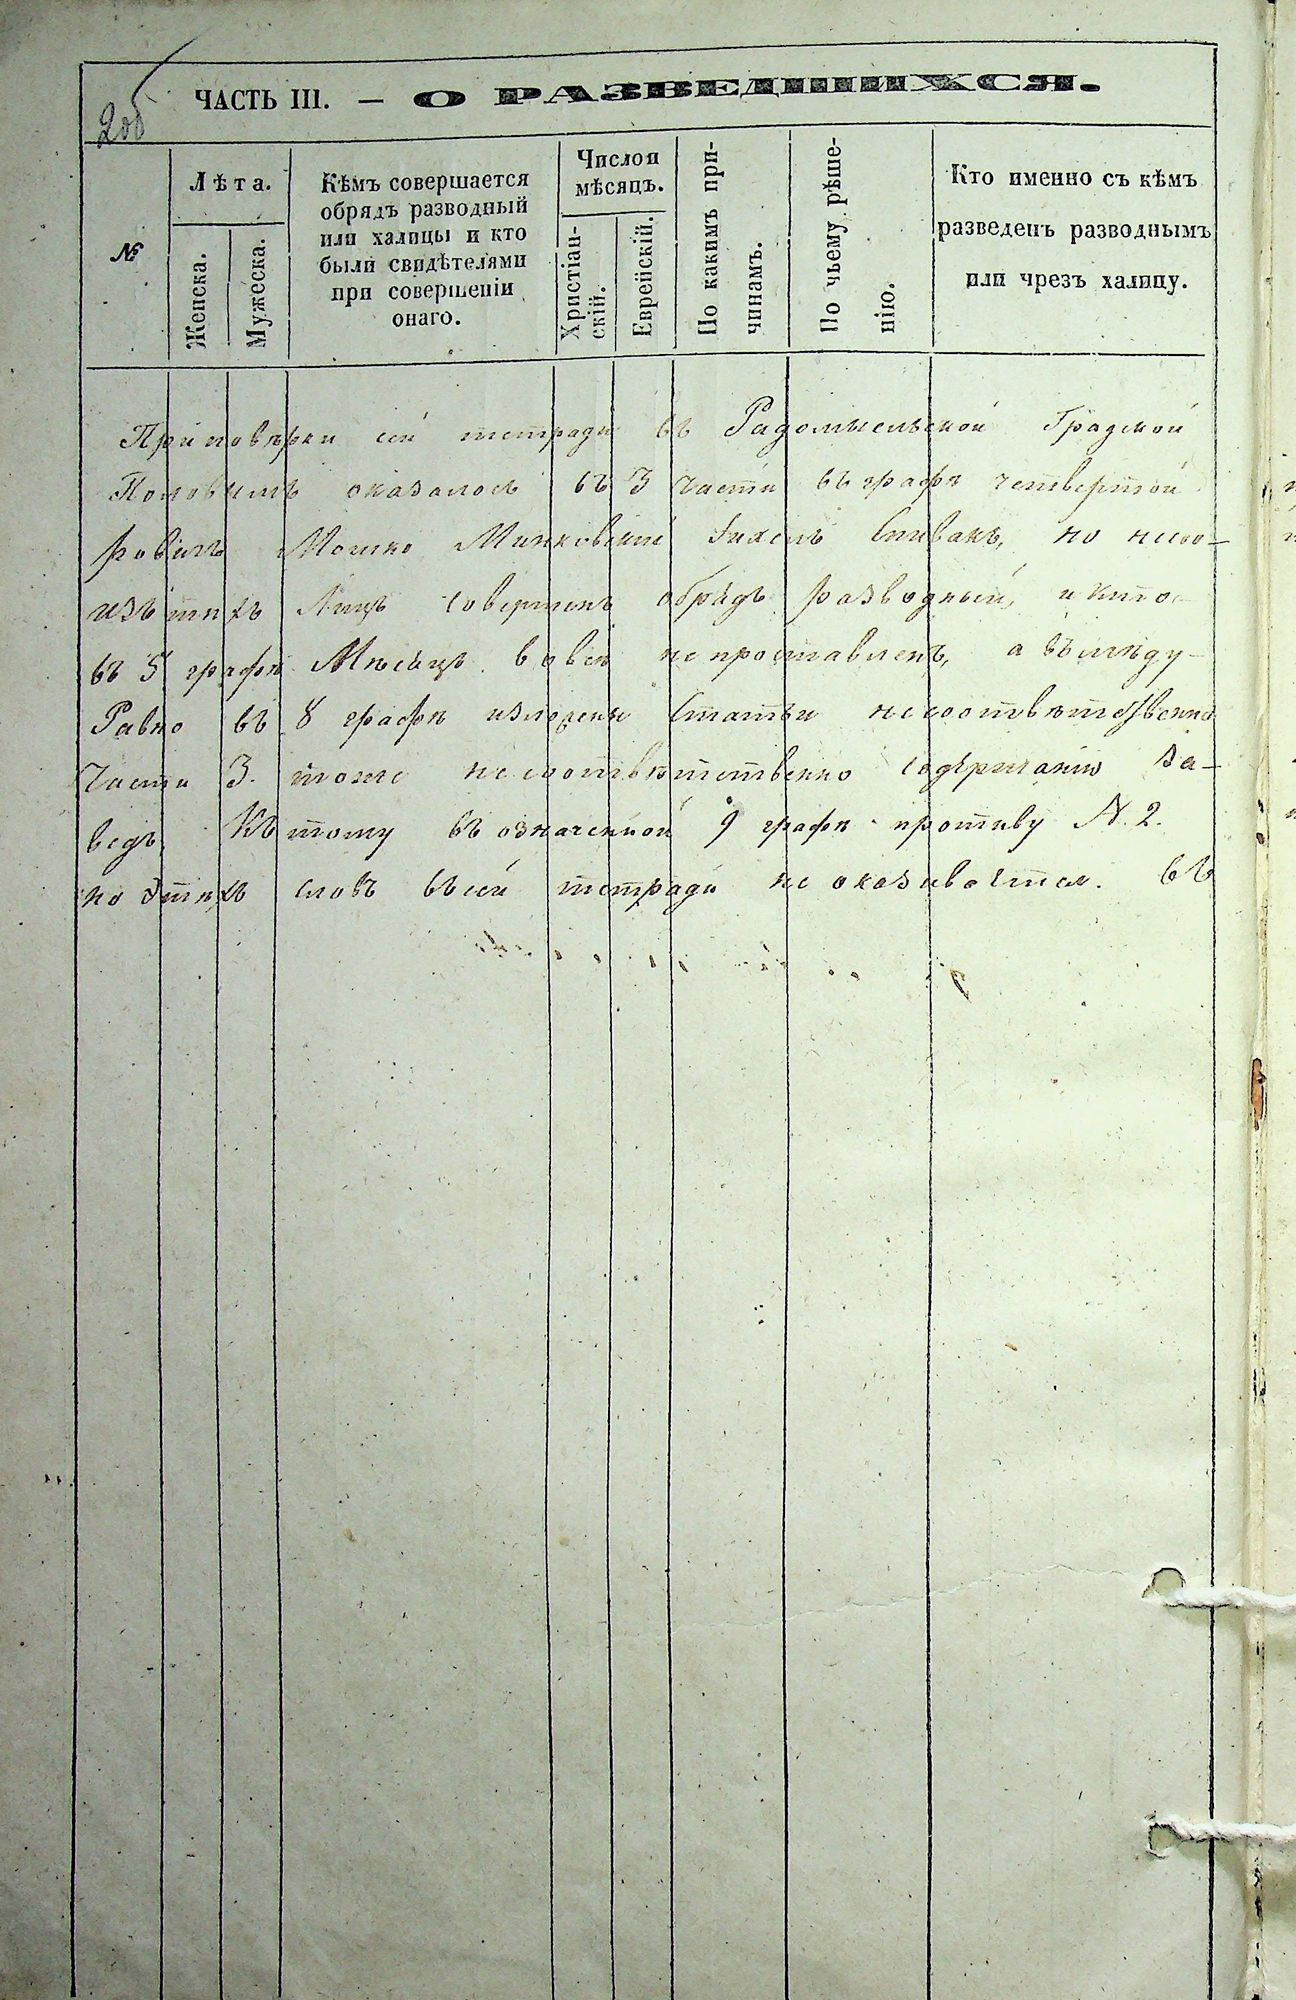 2об
ЧАСТЬ III. — О РАЗВЕДШИХСЯ.
№
Лѣта.
Женска.
Мужеска.
Кѣмъ совершается
обрядъ разводный
или халицы и кто
были свидѣтелями
при совершеніи
онаго.
Число и
мѣсяцъ.
Христіан-
скій.
Еврейскій.
По какимъ при-
чинамъ.
По чьему рѣше-
нію.
Кто именно съ кѣмъ
разведенъ разводнымъ
или чрезъ халицу.
При повѣрки сей тетради въ Радомысльской Градской
оказалось въ 3 части въ графѣ четвертой
Мошко Миньковскій Спивакъ, но
изъ тѣхъ Лицъ совершенъ обрядъ разводный, и кто
въ 5 графѣ Мѣсяцъ вовсе не проставленъ, а
Равно въ 8 графѣ изложены Статьи несоотвѣтственно
Части 3. тоже несоотвѣтственно содержанію За-
ведъ. Къ тому въ означенной 9 графѣ противу N. 2.
но этѣхъ словъ въ сей тетради не оказивается. въ